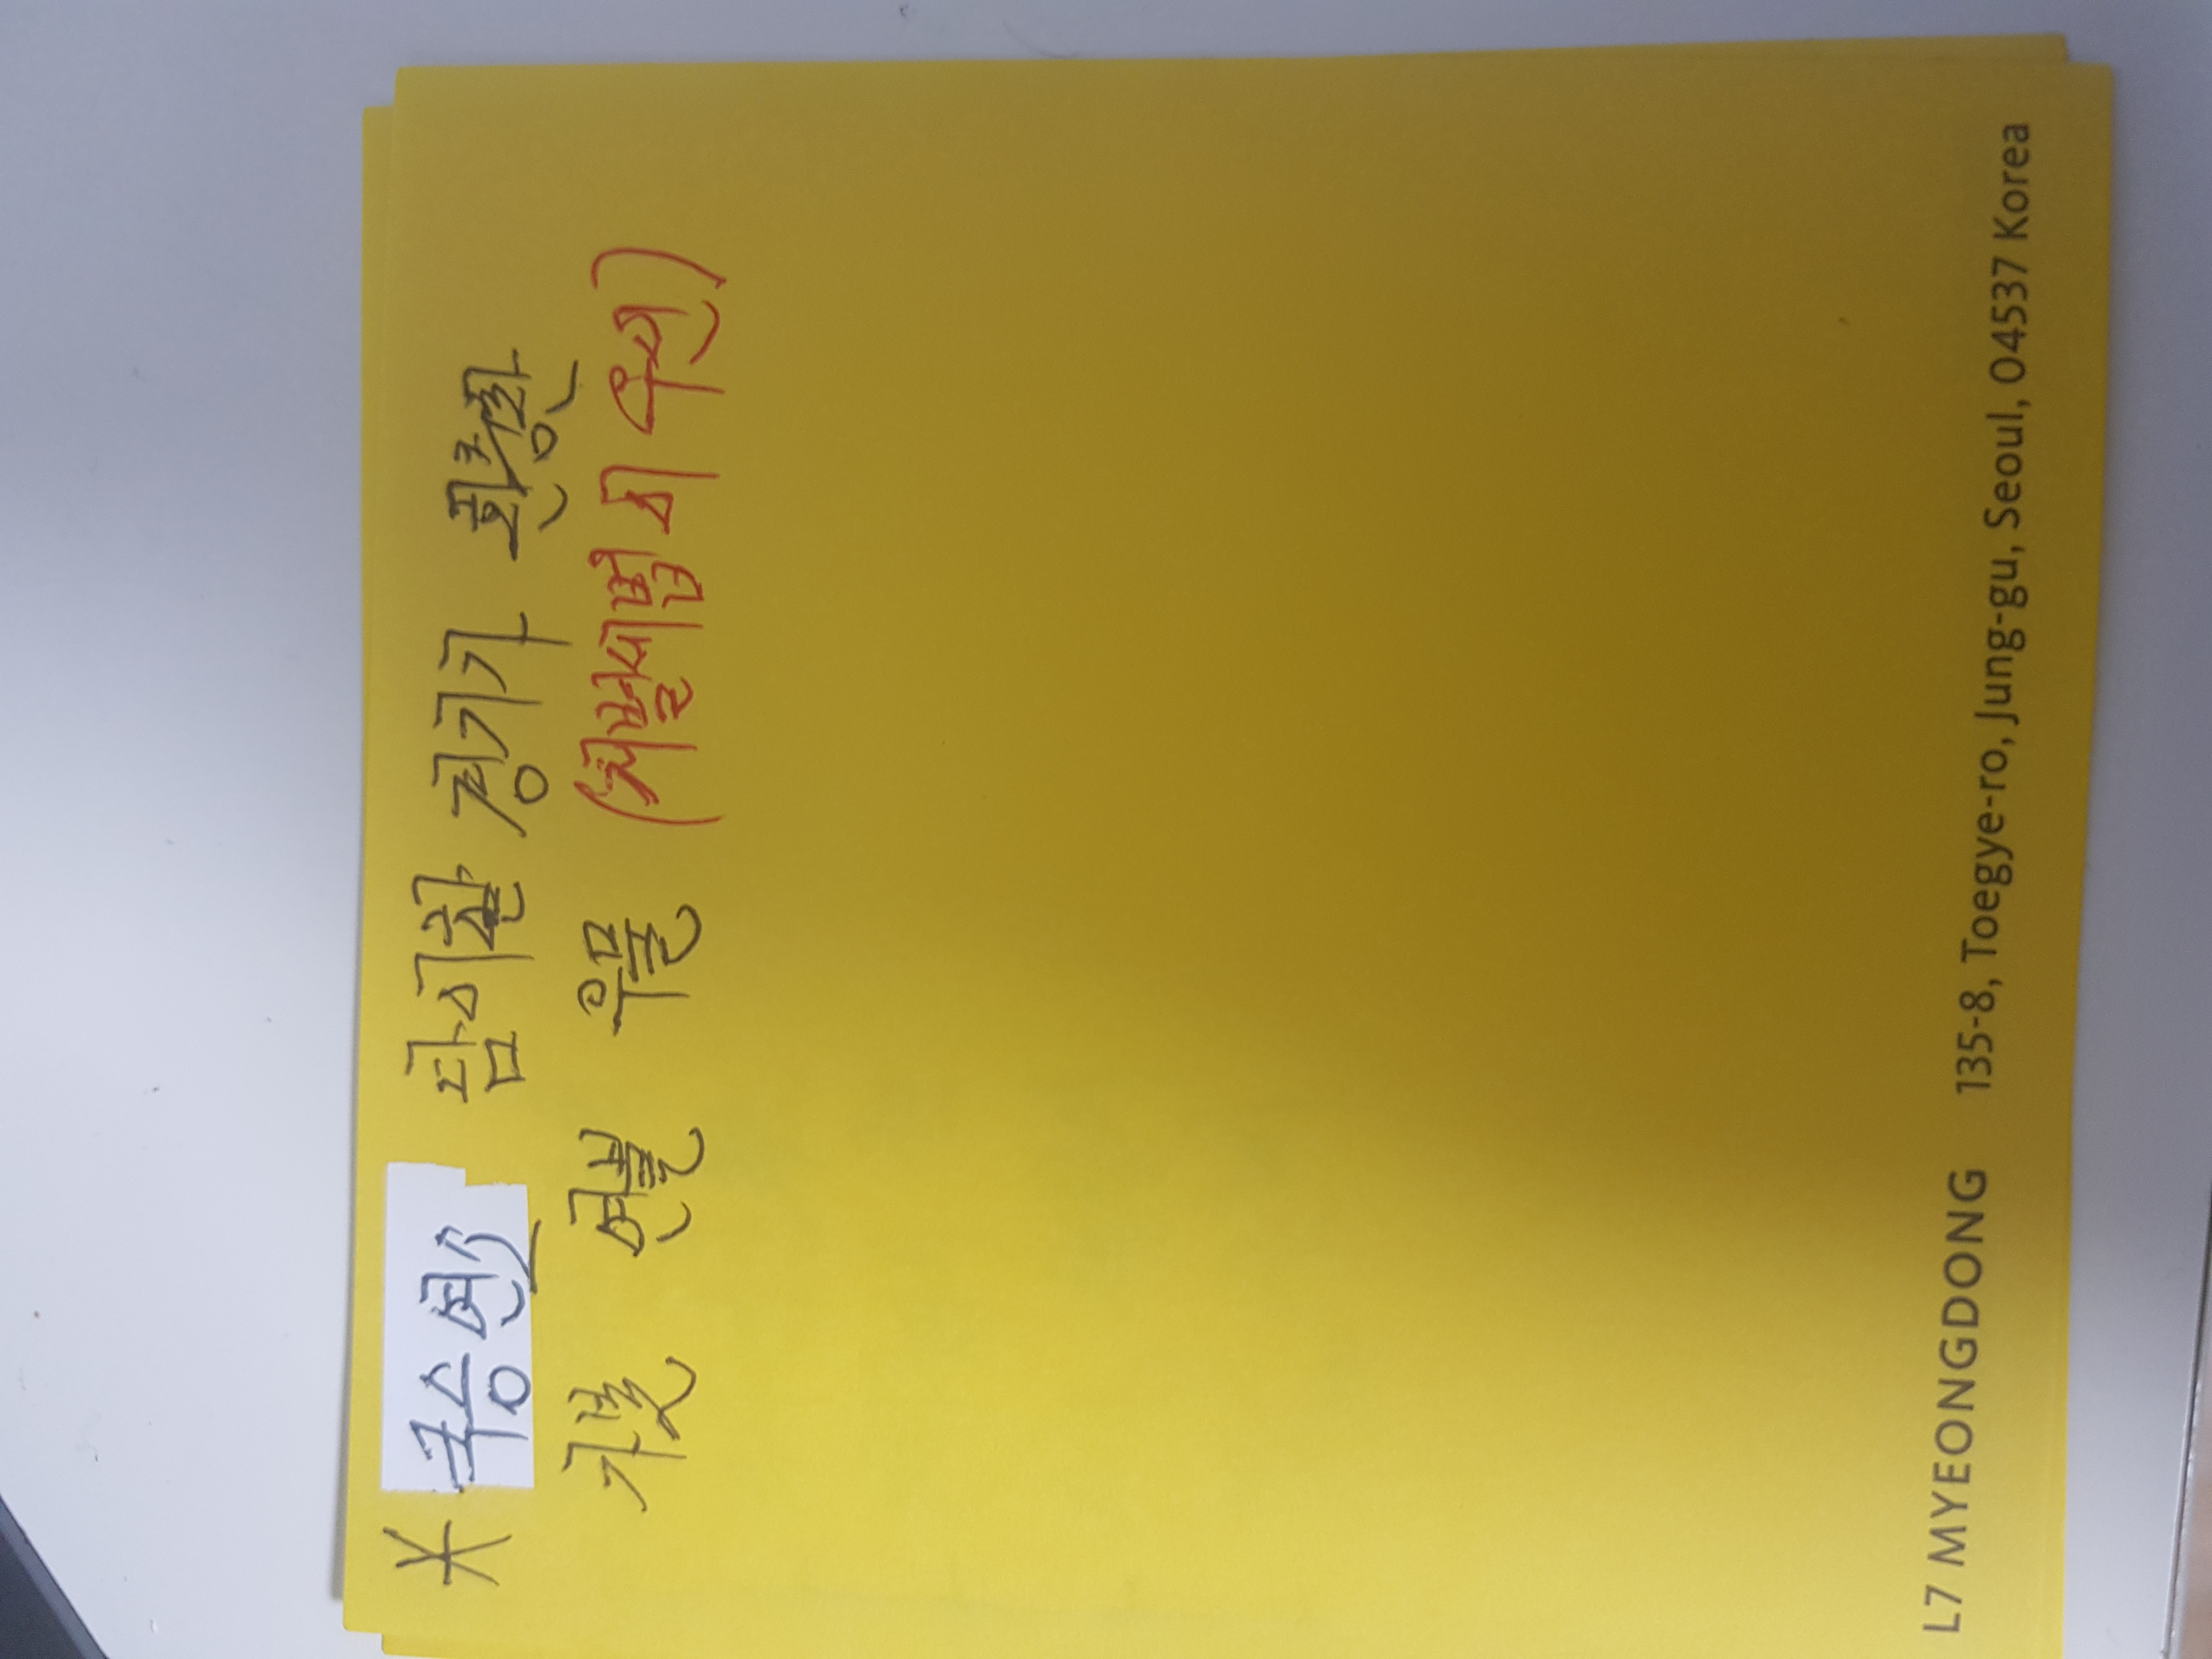 * 국승연소 담시할 경기가 환충환
가분 연불 우물 (처벌세법 시 우선)
L7 MYEONGDONG 135-8, Toegye-ro, Jung-gu, Seoul, 04537 Korea